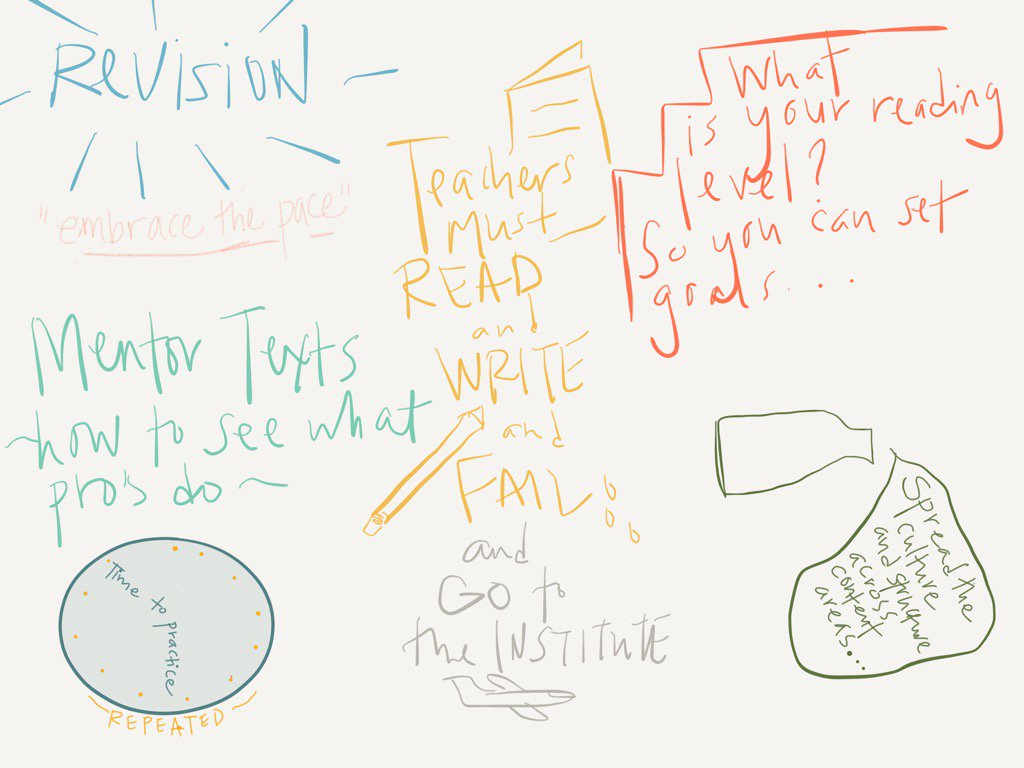 REVISION
"embrace the pace"
Mentor Texts
~how to see what
pro's do~
Time to practice
REPEATED
Teachers
Must
READ
and
WRITE
and
FAIL
and
GO to
the INSTITUTE
What
is your reading
level?
So you can set
goals....
Spread the
culture
and structure
across
content
areas...